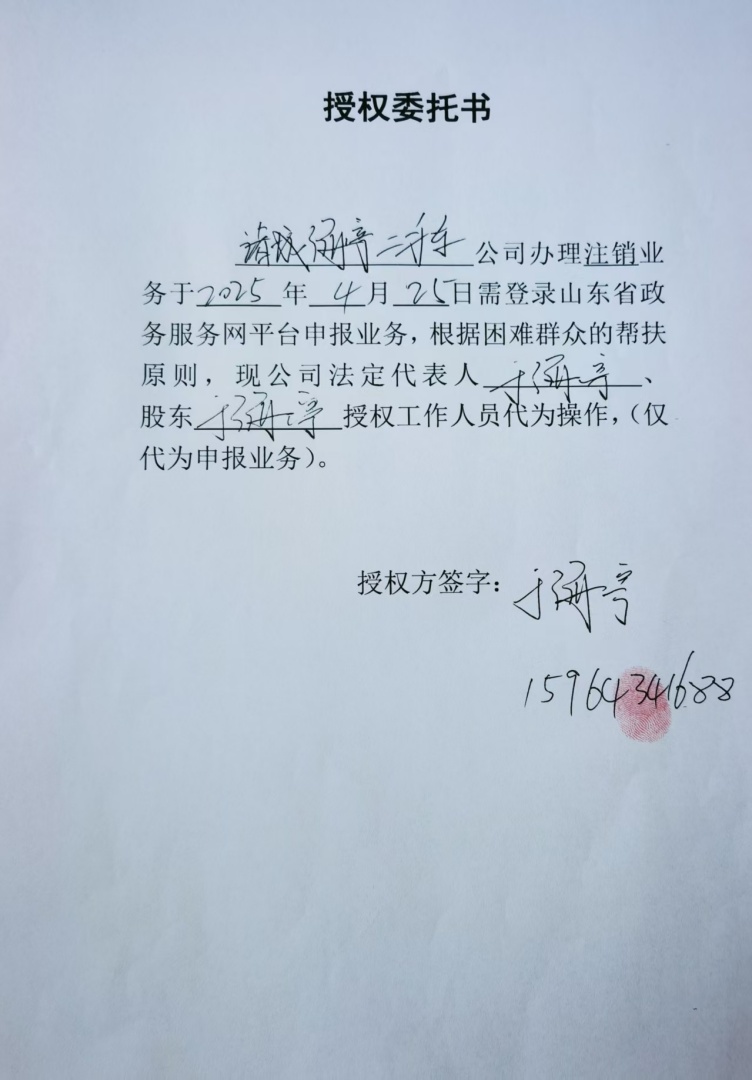 授权委托书
诸城海亭二手车公司办理注销业
务于2025年4月25日需登录山东省政
务服务网平台申报业务，根据困难群众的帮扶
原则，现公司法定代表人于海亭、
股东于海亭授权工作人员代为操作，（仅
代为申报业务）。
授权方签字：于海亭
15964341688